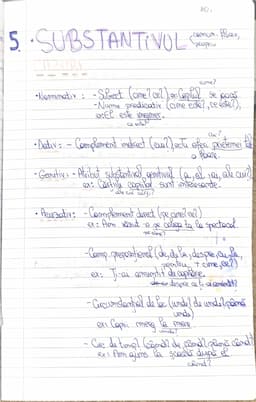 5. SUBSTANTIVUL
comun: 
propriu:
cine?
• Nominativ: - Subiect (cine? ce?) ex: Copilul se joacă
- Nume predicativ (cine este?, ce este?),
ex: El este
ce este?
cui?
• Dativ: - Complement indirect (cui?) ex: Ofer prietenei
o floare.
• Genitiv: - Atribut substantival genitival (a, al, ai, ale cui?)
ex: Cărțile copilului sunt interesante.
ale cui
• Acuzativ: - Complement direct (pe cine? ce?)
ex: Am văzut o pe colega ta la spectacol
pe cine?
- Comp. prepozițional (de, de la, despre, cu, la,
pentru, + cine, ce?)
ex: Ți-ai amintit de copilărie.
despre ce ți-ai amintit?
- Circumstanțial de loc (unde? de unde? până
unde)
ex: Copiii merg la mare
unde?
- Circ. de timp (când? de când? până când?)
ex: Am ajuns la școală după el
când?